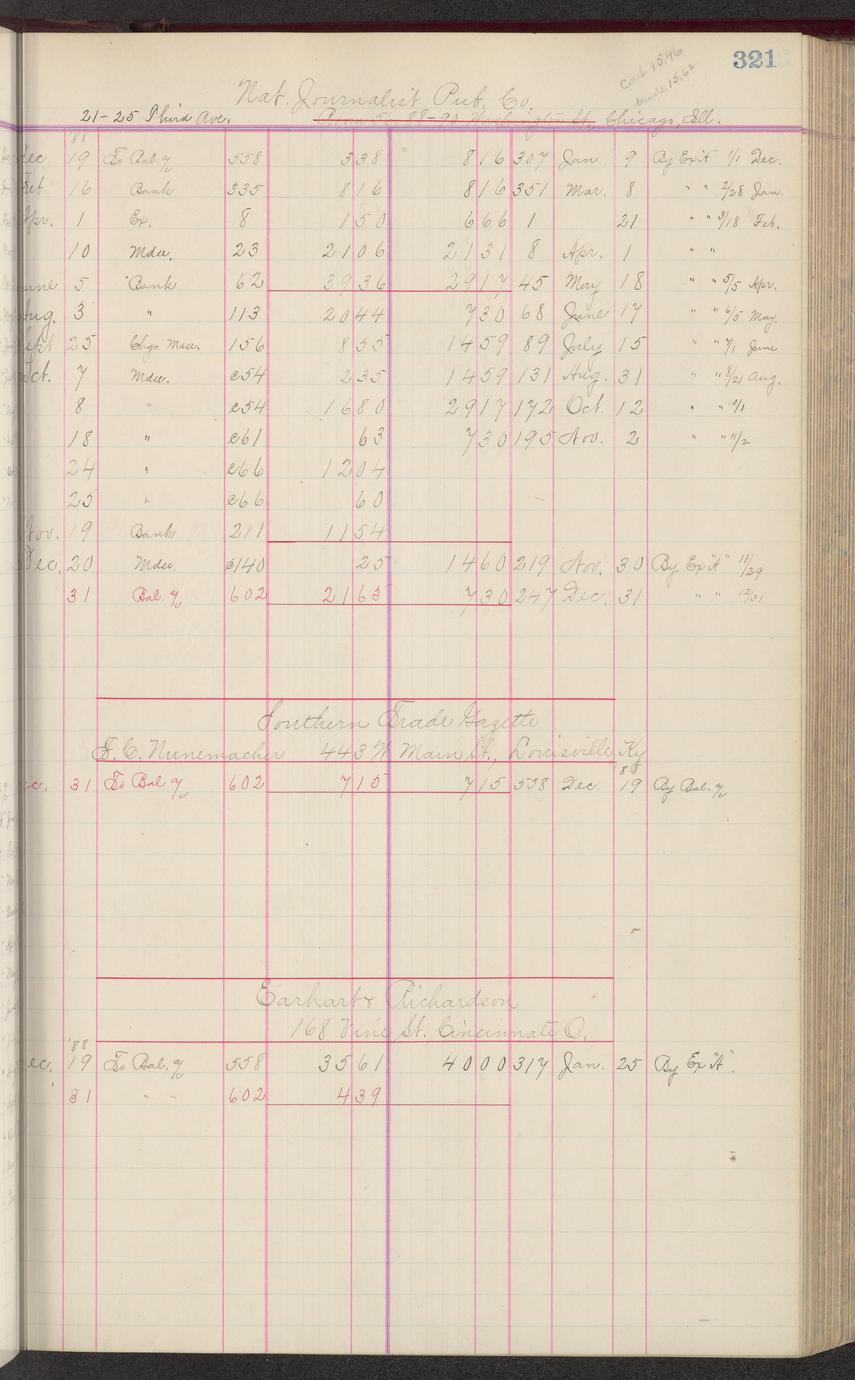 321
Cash 15,46
trade 15,62
Nat. Journalist Pub. Co.
21-25 Third Ave. Room 56, 88-90 Washington St., Chicago, Ill.
'88
Dec. 19 To Bal. a/c 558 338 " 816 307 Jan. 9 By Ex "A" 1/1 Dec.
Feb. 16 Bank 335 816 816 351 Mar. 8 " " 2/28 Jan.
Apr. 1 Ex. 8 150 666 1 21 " " 3/18 Feb.
10 Mdse. 23 2106 2131 8 Apr. 1 " "
June 5 Bank 62 3936 2917 45 May 18 " " 5/5 Apr.
Aug. 3 " 113 2044 730 68 June 17 " " 6/5 May.
Sept 25 Chgo. Mdse. 156 855 1459 89 July 15 " " 7/1 June
Oct. 7 Mdse. c54 235 1459 131 Aug. 31 " " 8/21 Aug.
8 " c54 1680 2917 172 Oct. 12 " " 10/1
18 " c61 63 730 195 Nov. 2 " " 11/2
24 " c66 1204
25 " c66 60
Nov. 19 Bank 211 1154
Dec. 20 Mdse. c140 25 1460 219 Nov. 30 By Ex "A" 11/29
31 Bal. a/c 602 2165 730 247 Dec. 31 " " 12/31
Southern Trade Gazette
F. C. Nunemacher 443 W. Main St., Louisville Ky
'88
Dec. 31 To Bal a/c 602 715 715 558 Dec. 19 By Bal. a/c
Earhart & Richardson
168 Vine St. Cincinnate O.
'88
Dec. 19 To Bal. a/c 558 3561 4000 317 Jan. 25 By Ex "A".
31 " " 602 439